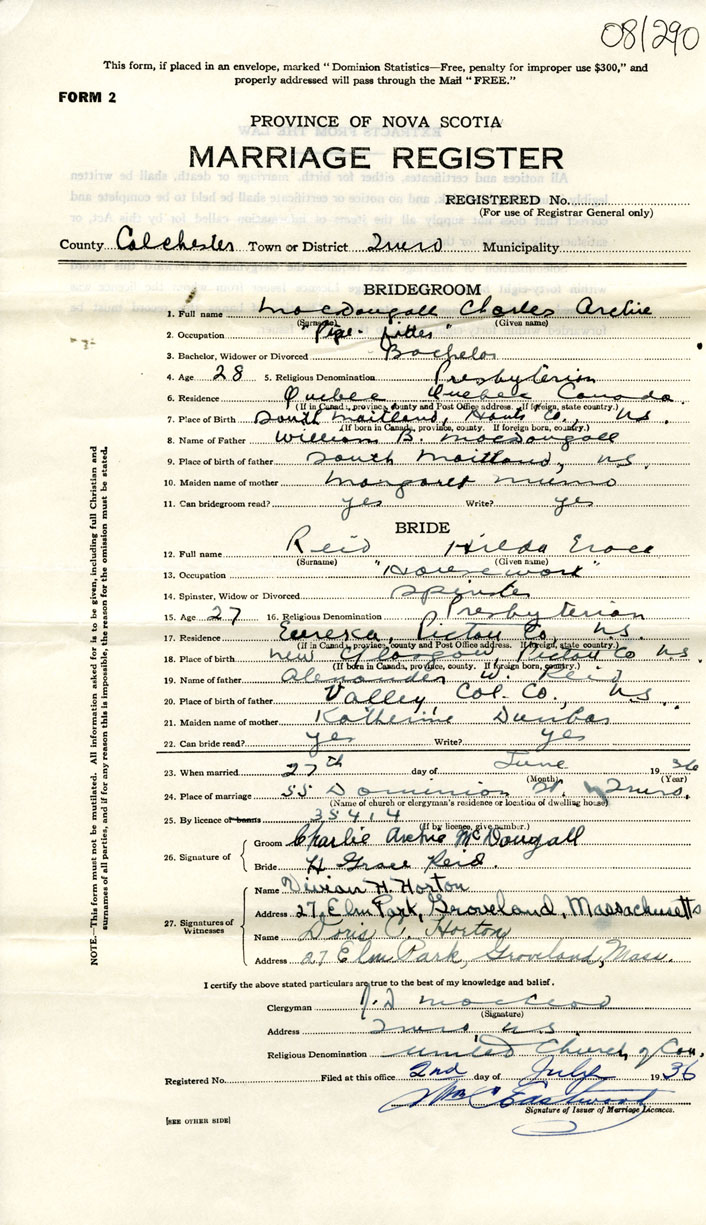 08/290
This form, if placed in an envelope, marked "Dominion Statistics—Free, penalty for improper use $300," and
properly addressed will pass through the Mail "FREE."
FORM 2
PROVINCE OF NOVA SCOTIA
MARRIAGE REGISTER
REGISTERED No.
(For use of Registrar General only)
County Colchester Town or District Truro Municipality
BRIDEGROOM
1. Full name MacDougall Charles Archie
(Surname) (Given name)
2. Occupation "Pipe-fitter"
3. Bachelor, Widower or Divorced Bachelor
4. Age 28 5. Religious Denomination Presbyterian
6. Residence Quebec Quebec Canada
(If in Canada, province, county and Post Office address. If foreign, state country.)
7. Place of Birth South Maitland, Hants Co., N.S.
(If born in Canada, province, county. If foreign born, country.)
8. Name of Father William B. MacDougall
9. Place of birth of father South Maitland, N.S.
10. Maiden name of mother Margaret Munro
11. Can bridegroom read? yes Write? yes
BRIDE
12. Full name Reid Hilda Grace
(Surname) (Given name)
13. Occupation "Housework"
14. Spinster, Widow or Divorced Spinster
15. Age 27 16. Religious Denomination Presbyterian
17. Residence Eureka, Pictou Co., N.S.
(If in Canada, province, county and Post Office address. If foreign, state country.)
18. Place of birth New Glasgow, Pictou Co N.S.
(If born in Canada, province, county. If foreign born, country.)
19. Name of father Alexander W. Reid
20. Place of birth of father Valley, Col. Co., N.S.
21. Maiden name of mother Katherine Dunbar
22. Can bride read? yes Write? yes
23. When married 27th day of June 1936
(Month) (Year)
24. Place of marriage 55 Dominion St. Truro.
(Name of church or clergyman's residence or location of dwelling house)
25. By licence or banns 35414
(If by licence, give number.)
26. Signature of
Groom Charlie Archie McDougall
Bride H. Grace Reid.
27. Signatures of Witnesses
Name Vivian H. Horton
Address 27, Elm Park, Groveland, Massachusetts
Name Doris C. Horton
Address 27 Elm Park, Groveland, Mass.
I certify the above stated particulars are true to the best of my knowledge and belief.
Clergyman J.D MacLeod
(Signature)
Address Truro N.S.
Religious Denomination United Church of Can.
Registered No. Filed at this office 2nd day of July 1936
Wm C Eastwood
Signature of Issuer of Marriage Licences.
[SEE OTHER SIDE]
NOTE.—This form must not be mutilated. All information asked for is to be given, including full Christian and
surnames of all parties, and if for any reason this is impossible, the reason for the omission must be stated.